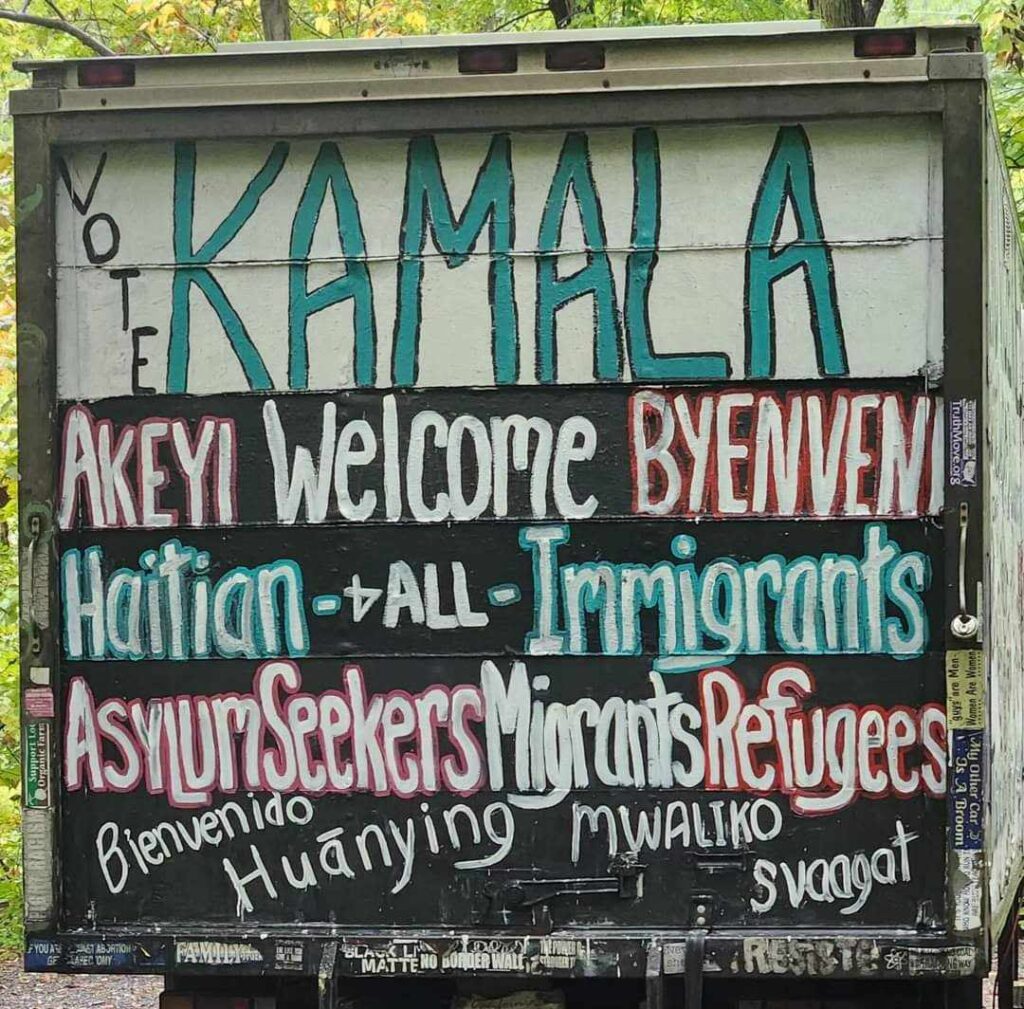 VOTE KAMALA
AKEYI Welcome BYENVENI
Haitian - + ALL - Immigrants
Asylum Seekers Migrants Refugees
Bienvenido
Huānyíng
MWALIKO
svaagat
TruthMove.org
Support Local
Organic Farm
Guys are Men-
Women Are Women
My Other Car
Is A Broom
FAMILY
BLACK LI
MATTE
NO BORDER WALL
RESISTE